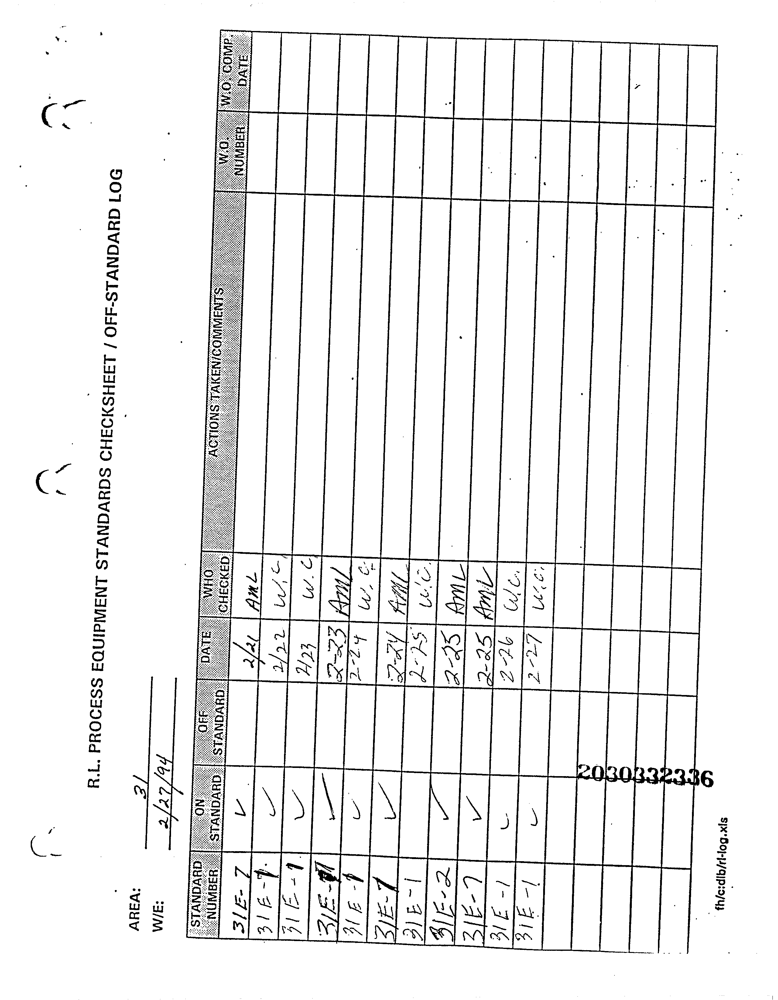 R.L. PROCESS EQUIPMENT STANDARDS CHECKSHEET / OFF-STANDARD LOG
AREA: 31
W/E: 2/27/94
STANDARD NUMBER ON STANDARD OFF STANDARD DATE WHO CHECKED ACTIONS TAKEN/COMMENTS W.O. NUMBER W.O. COMP. DATE
31E-7 ✓ 2/21 AML
31E-1 ✓ 2/22 W.C.
31E-1 ✓ 2/23 W.C.
31E- ✓ 2-23 AML
31E-1 ✓ 2-24 W.C.
31E-7 ✓ 2-24 AML
31E-1 2-25 W.C.
31E-2 ✓ 2-25 AML
31E-7 ✓ 2-25 AML
31E-1 ✓ 2-26 W.C.
31E-1 ✓ 2-27 W.C.
2030332336
fh/c:dlb/rl-log.xls